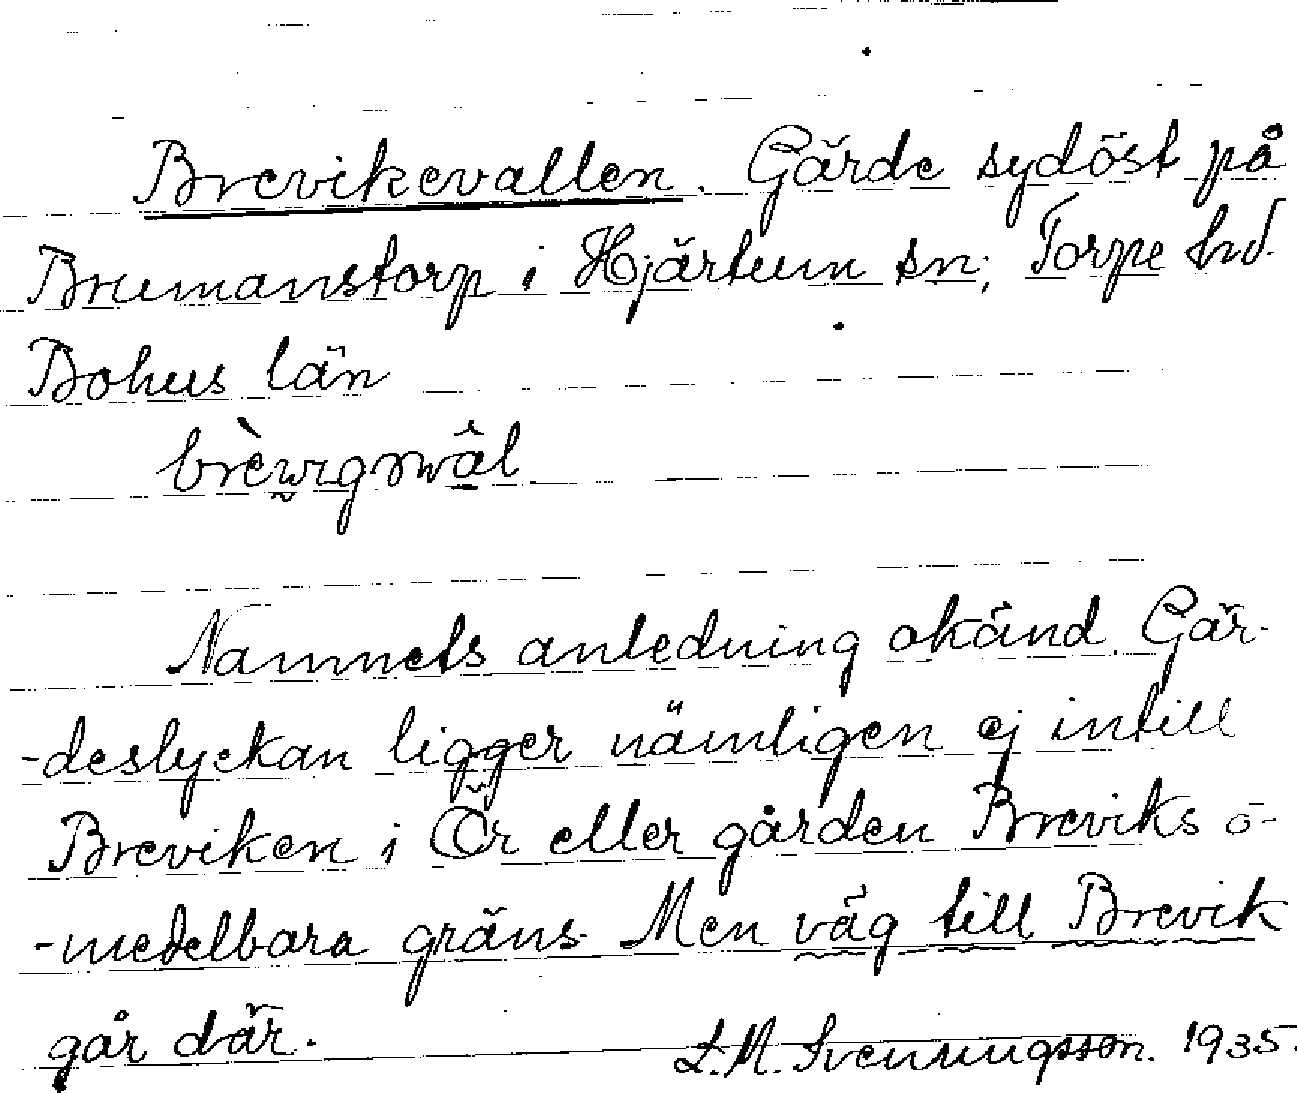 Brevikevallen. Gärde sydöst på
Brumanstorp i Hjärtum sn; Torpe hd.
Bohus län
Namnets anledning okänd. Gär-
-deslyckan ligger nämligen ej intill
Breviken i Ör eller gården Breviks o-
-medelbara gräns. Men väg till Brevik
går där.
L.M. Svenningsson. 1935.